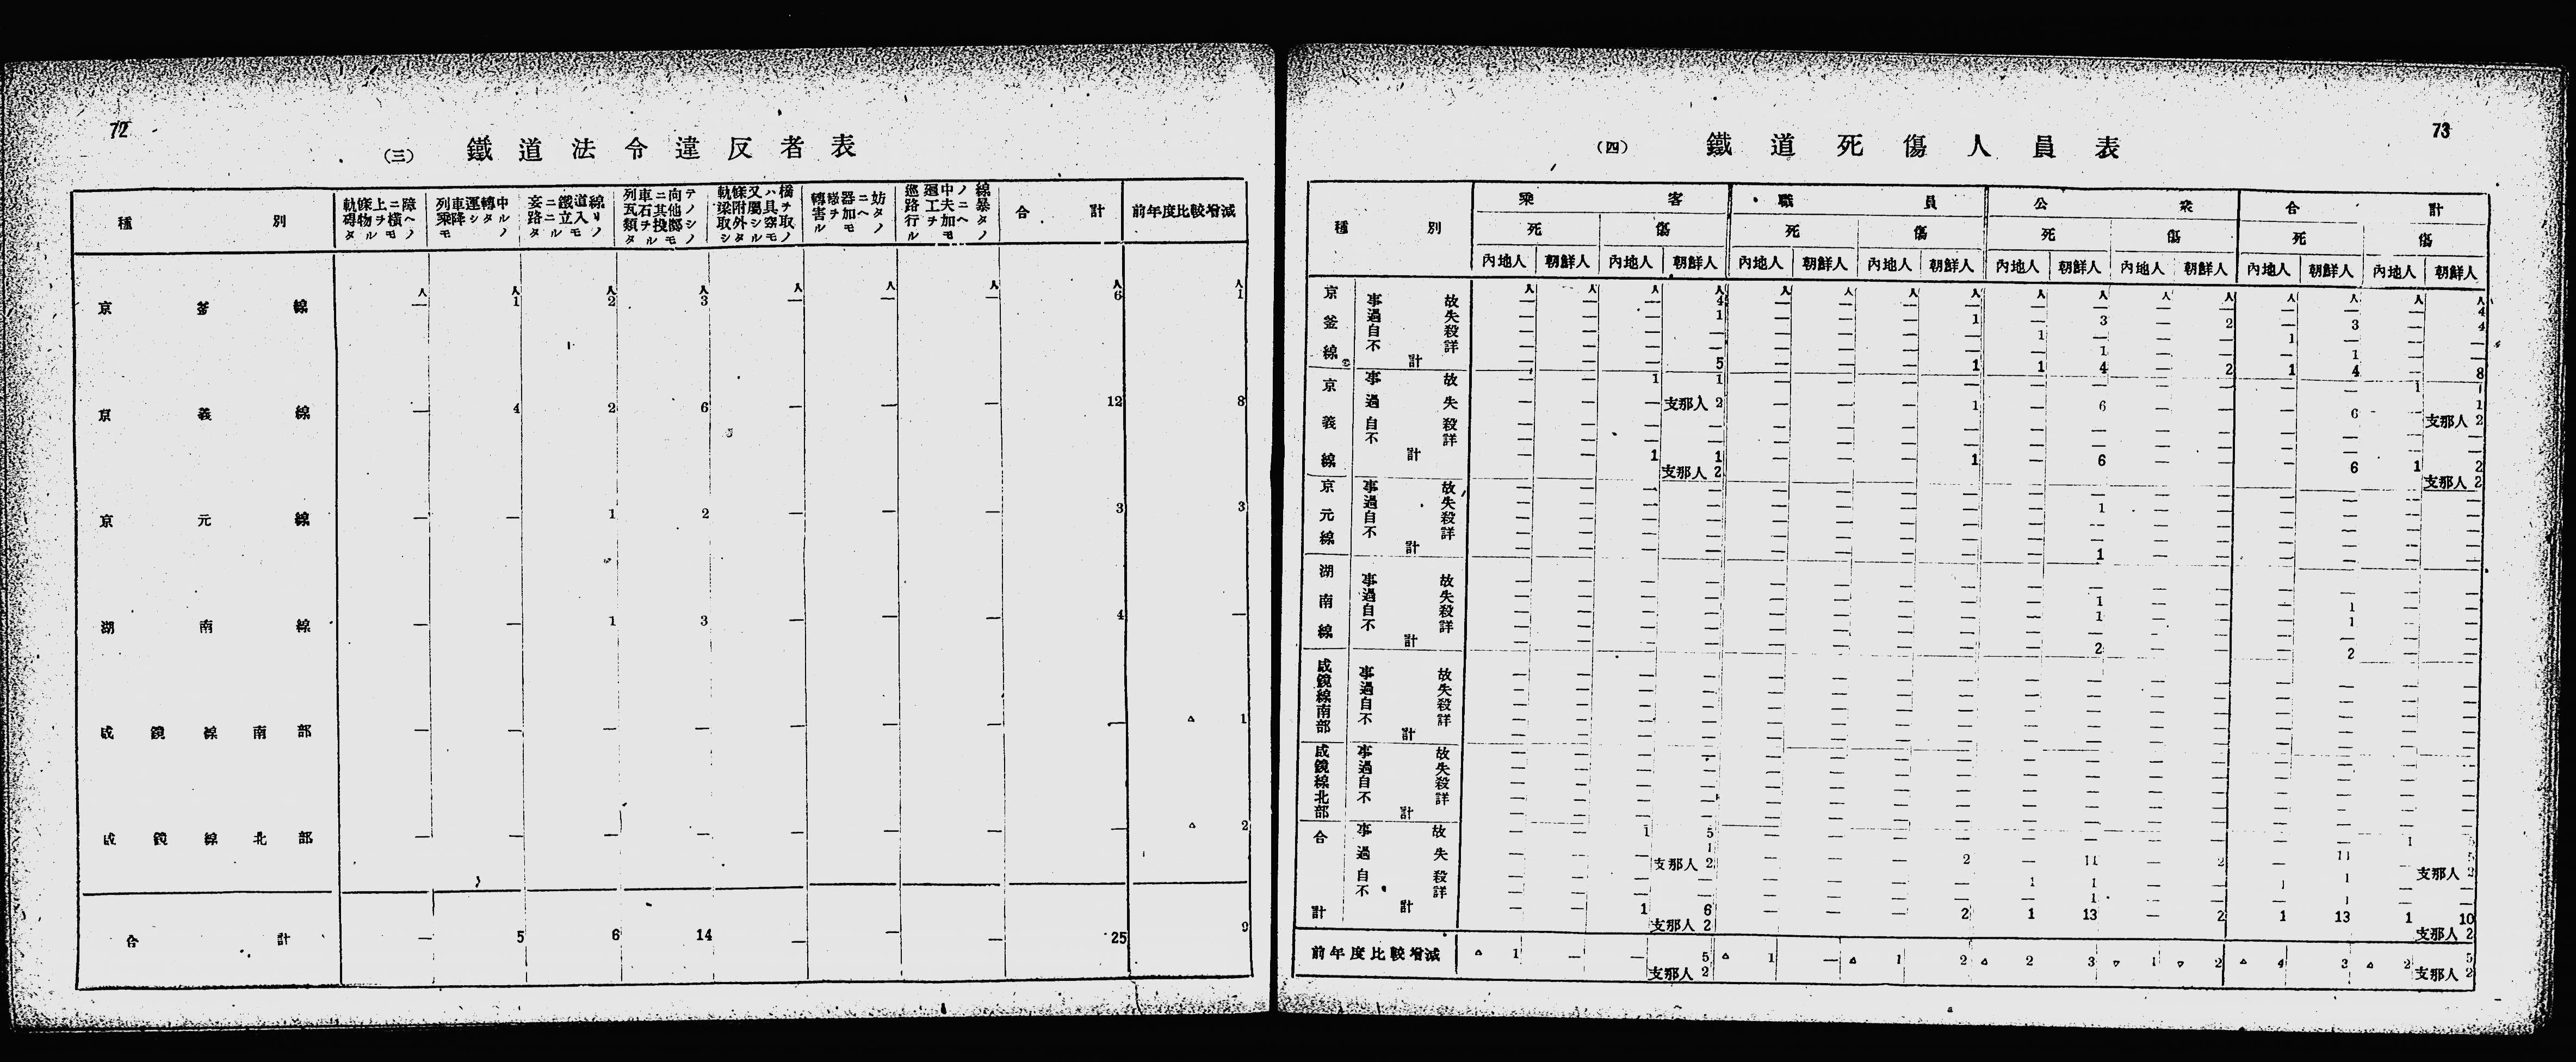 72
(三) 鐵道法令違反者表
種別 軌條上ニ障礙物ヲ横ヘタルモノ 列車運轉中乘降シタルモノ 妄ニ鐵道線路ニ立入リタルモノ 列車ニ向テ瓦石其他ノ類ヲ投擲シタルモノ 軌條又ハ橋梁附屬具ヲ取外シ竊取シタルモノ 轉轍器ニ妨害ヲ加ヘタルモノ 巡廻中ノ線路工夫ニ暴行ヲ加ヘタルモノ 合計 前年度比較增減
人 人 人 人 人 人 人 人 人
京釜線 — 1 2 3 — — — 6 1
京義線 — 4 2 6 — — — 12 8
京元線 — — 1 2 — — — 3 3
湖南線 — — 1 3 — — — 4 —
咸鏡線南部 — — — — — — — — △ 1
咸鏡線北部 — — — — — — — — △ 2
合計 — 5 6 14 — — — 25 9
73
(四) 鐵道死傷人員表
種別 乘客 職員 公衆 合計
死 傷 死 傷 死 傷 死 傷
內地人 朝鮮人 內地人 朝鮮人 內地人 朝鮮人 內地人 朝鮮人 內地人 朝鮮人 內地人 朝鮮人 內地人 朝鮮人 內地人 朝鮮人
人 人 人 人 人 人 人 人 人 人 人 人 人 人 人 人
京釜線 事故 — — — 4 — — — — — — — — — — — 4
過失 — — — 1 — — — 1 — 3 — 2 — 3 — 4
自殺 — — — — — — — — 1 — — — 1 — — —
不詳 — — — — — — — — — 1 — — — 1 — —
計 — — — 5 — — — 1 1 4 — 2 1 4 — 8
京義線 事故 — — 1 1 — — — — — — — — — — 1 1
過失 — — — 支那人 2 — — — 1 — 6 — — — 6 — 1
支那人 2
自殺 — — — — — — — — — — — — — — — —
不詳 — — — — — — — — — — — — — — — —
計 — — 1 1 — — — 1 — 6 — — — 6 1 2
支那人 2 支那人 2
京元線 事故 — — — — — — — — — — — — — — — —
過失 — — — — — — — — — 1 — — — — — —
自殺 — — — — — — — — — — — — — — — —
不詳 — — — — — — — — — — — — — — — —
計 — — — — — — — — — 1 — — — — — —
湖南線 事故 — — — — — — — — — — — — — — — —
過失 — — — — — — — — — 1 — — — 1 — —
自殺 — — — — — — — — — 1 — — — 1 — —
不詳 — — — — — — — — — — — — — — — —
計 — — — — — — — — — 2 — — — 2 — —
咸鏡線南部 事故 — — — — — — — — — — — — — — — —
過失 — — — — — — — — — — — — — — — —
自殺 — — — — — — — — — — — — — — — —
不詳 — — — — — — — — — — — — — — — —
計 — — — — — — — — — — — — — — — —
咸鏡線北部 事故 — — — — — — — — — — — — — — — —
過失 — — — — — — — — — — — — — — — —
自殺 — — — — — — — — — — — — — — — —
不詳 — — — — — — — — — — — — — — — —
計 — — — — — — — — — — — — — — — —
合計 事故 — — 1 5 — — — — — — — — — — 1 5
過失 — — — 1 — — — 2 — 11 — 2 — 11 —
支那人 2 支那人 2
自殺 — — — — — — — — 1 1 — — 1 1 — —
不詳 — — — — — — — — — 1 — — — 1 — —
計 — — 1 6 — — — 2 1 13 — 2 1 13 1 10
支那人 2 支那人 2
前年度比較增減 △ 1 — — 5 △ 1 — △ 1 2 △ 2 3 ▽ 1 ▽ 2 △ 4 3 △ 2 5
支那人 2 支那人 2